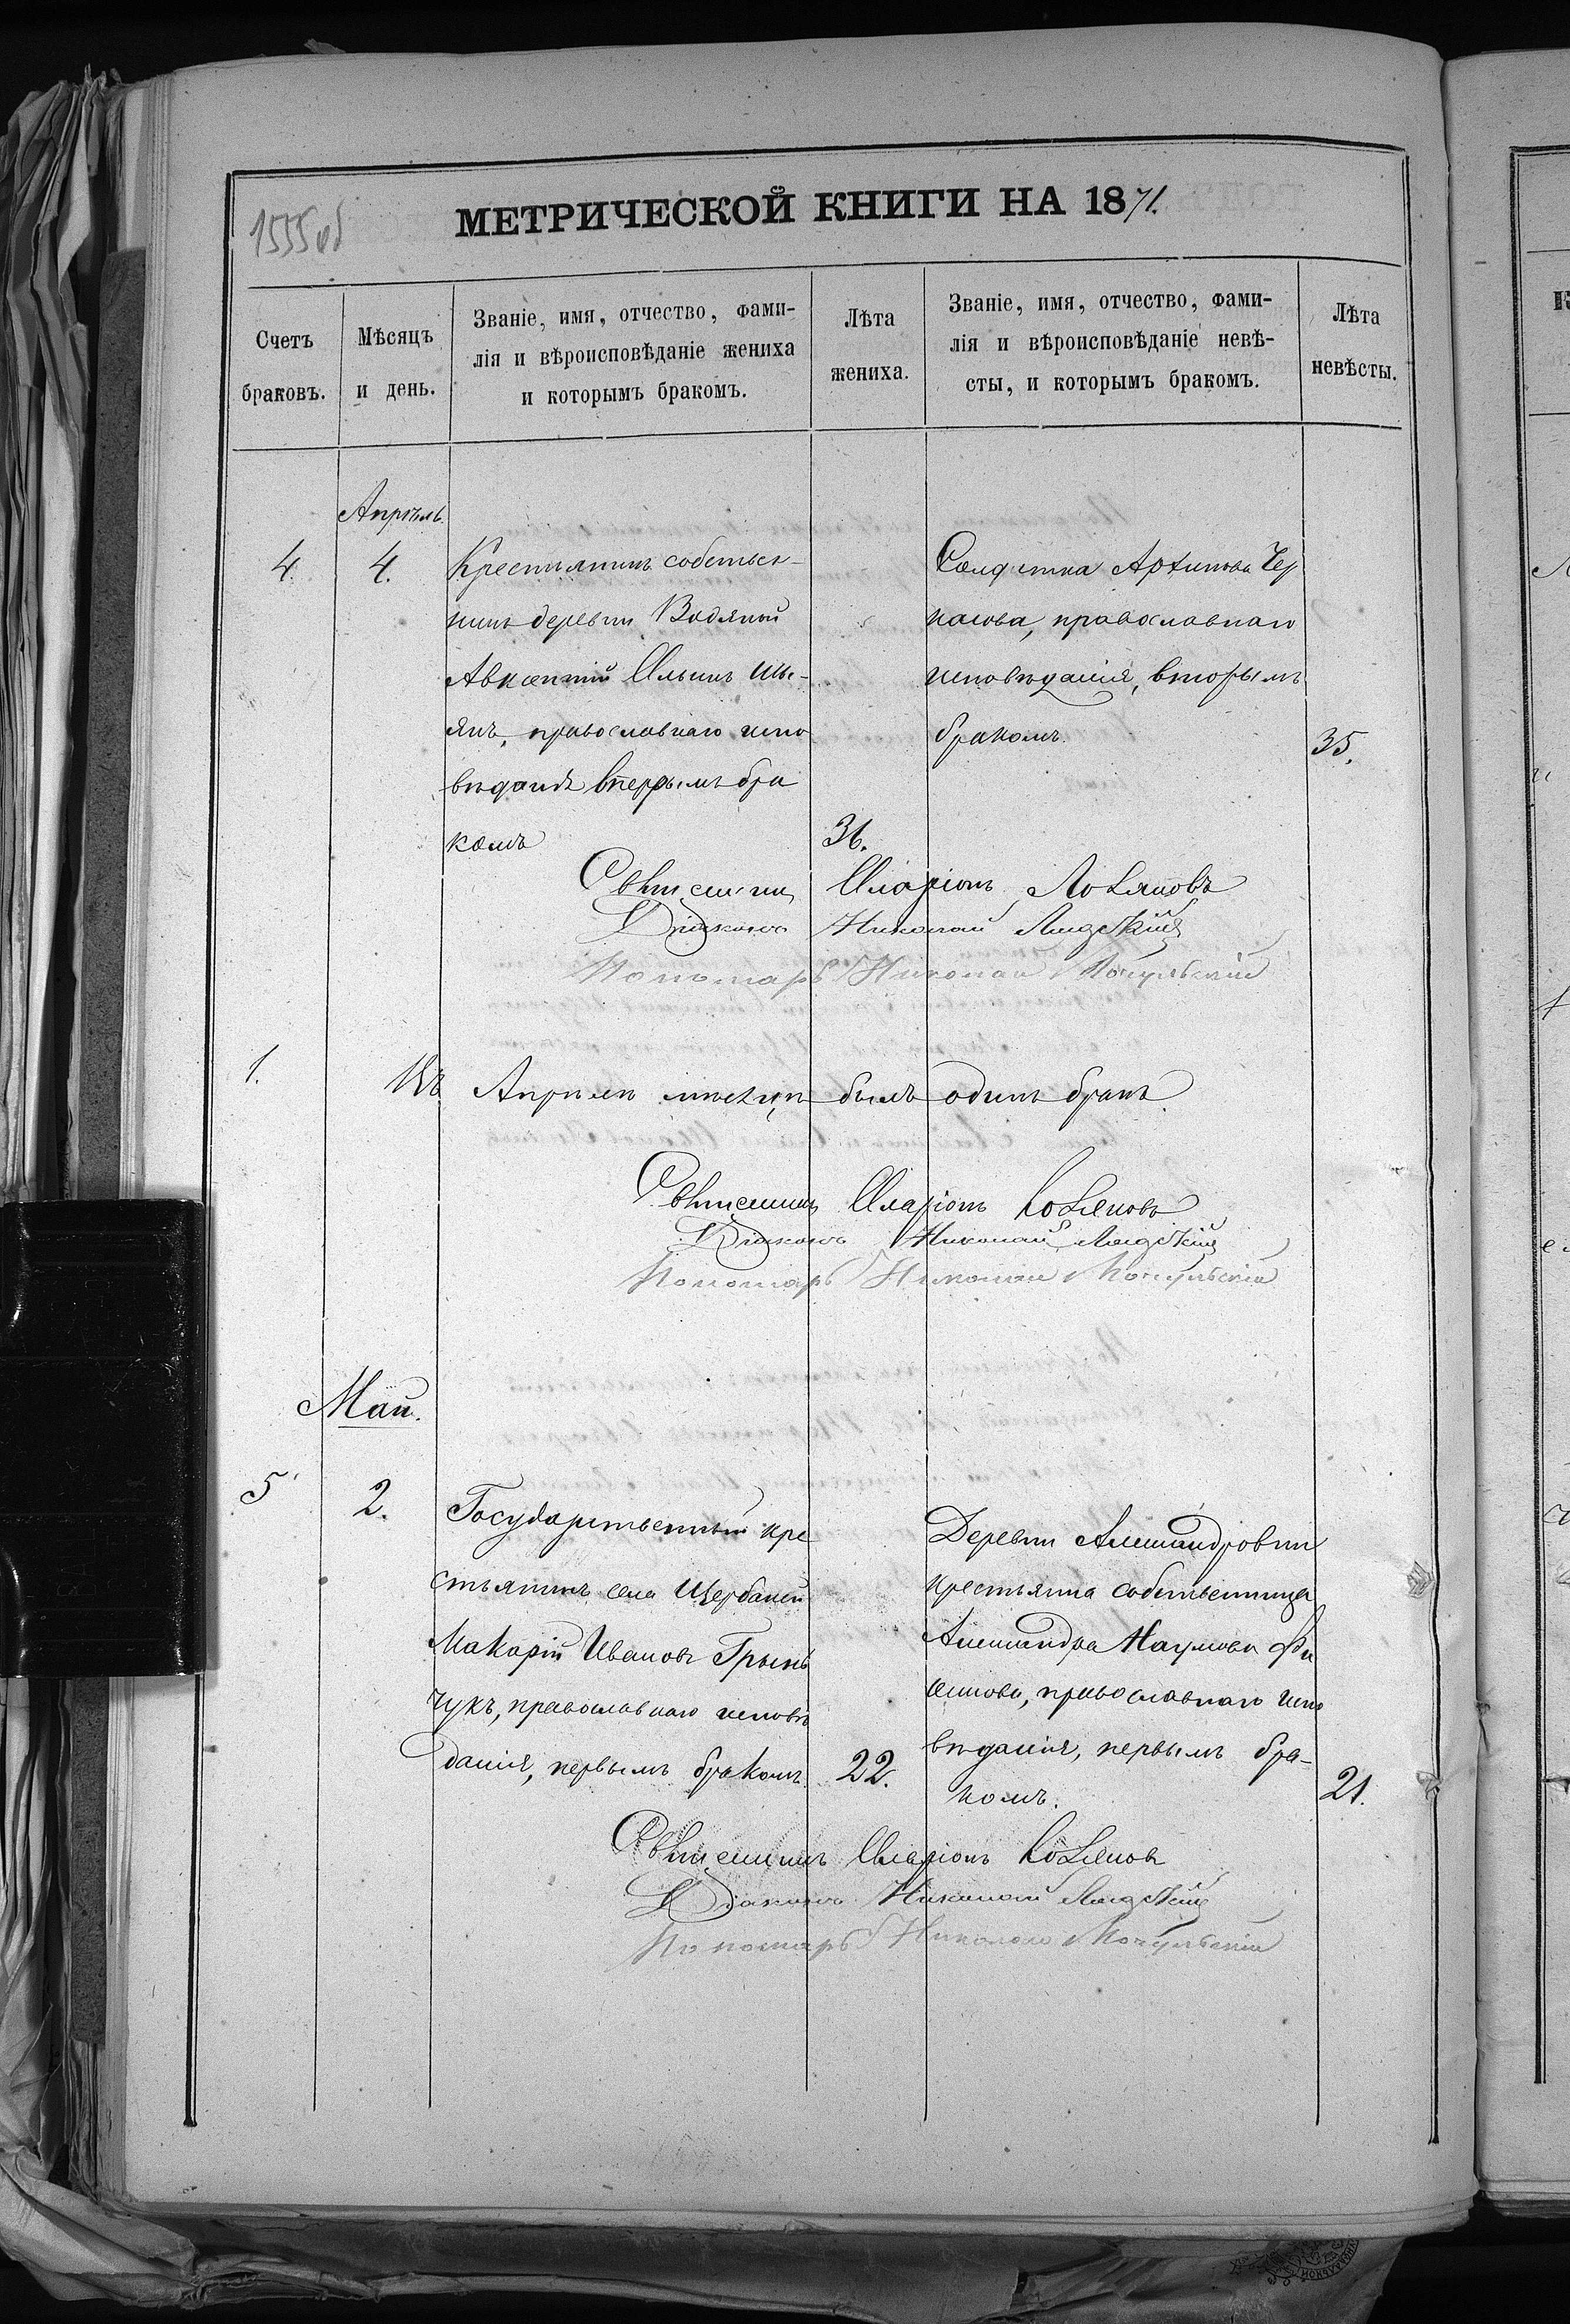 1555 об
МЕТРИЧЕСКОЙ КНИГИ НА 1871.
Счетъ браковъ.
Мѣсяцъ и день.
Званіе, имя, отчество, фами-
лія и вѣроисповѣданіе жениха
и которымъ бракомъ.
Лѣта
жениха.
Званіе, имя, отчество, фами-
лія и вѣроисповѣданіе невѣ-
сты, и которымъ бракомъ.
Лѣта
невѣсты.
Апрѣль.
4. 4.
Крестьянинъ собствен-
никъ деревни Водяной
Авксентій Ильинъ
православнаго испо
вѣданія первымъ бра
комъ
36.
Солдатка Архипова Чер
касова, православнаго
исповѣданія, вторымъ
бракомъ.
35.
Священникъ Иларіонъ
Діаконъ Николай
Пономарь Николай Мочульскій
1. Въ Апрѣлѣ мѣсяцѣ былъ одинъ бракъ.
Священникъ Иларіонъ
Діаконъ Николай
Пономарь Николай Мочульскій
Май.
5 2.
Государственный кре
стьянинъ села Щербаней
Макарій Ивановъ Грын
чукъ, православнаго исповѣ
данія, первымъ бракомъ
22.
Деревни Александровки
крестьянка собственница
Александра Наумова
православнаго испо
вѣданія, первымъ бра-
комъ.
21.
Священникъ Иларіонъ
Діаконъ Николай
Пономарь Николай Мочульскій